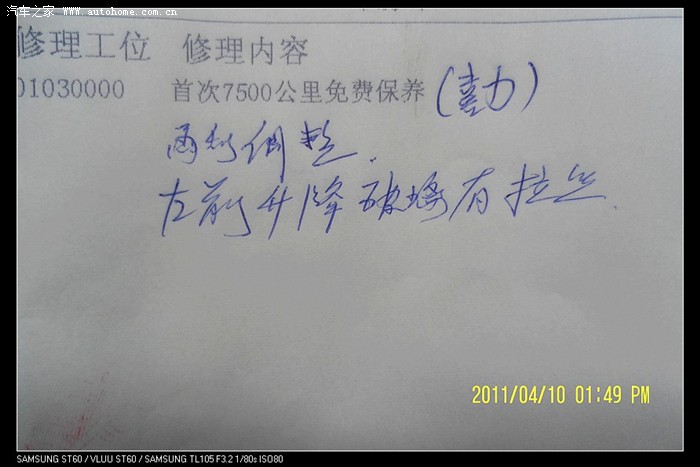 汽车之家 www.autohome.com.cn
修理工位 修理内容
01030000 首次7500公里免费保养 (喜力)
雨刮调整.
左前升降玻璃有拉丝.
2011/04/10 01:49 PM
SAMSUNG ST60 / VLUU ST60 / SAMSUNG TL105 F3.2 1/80s ISO80